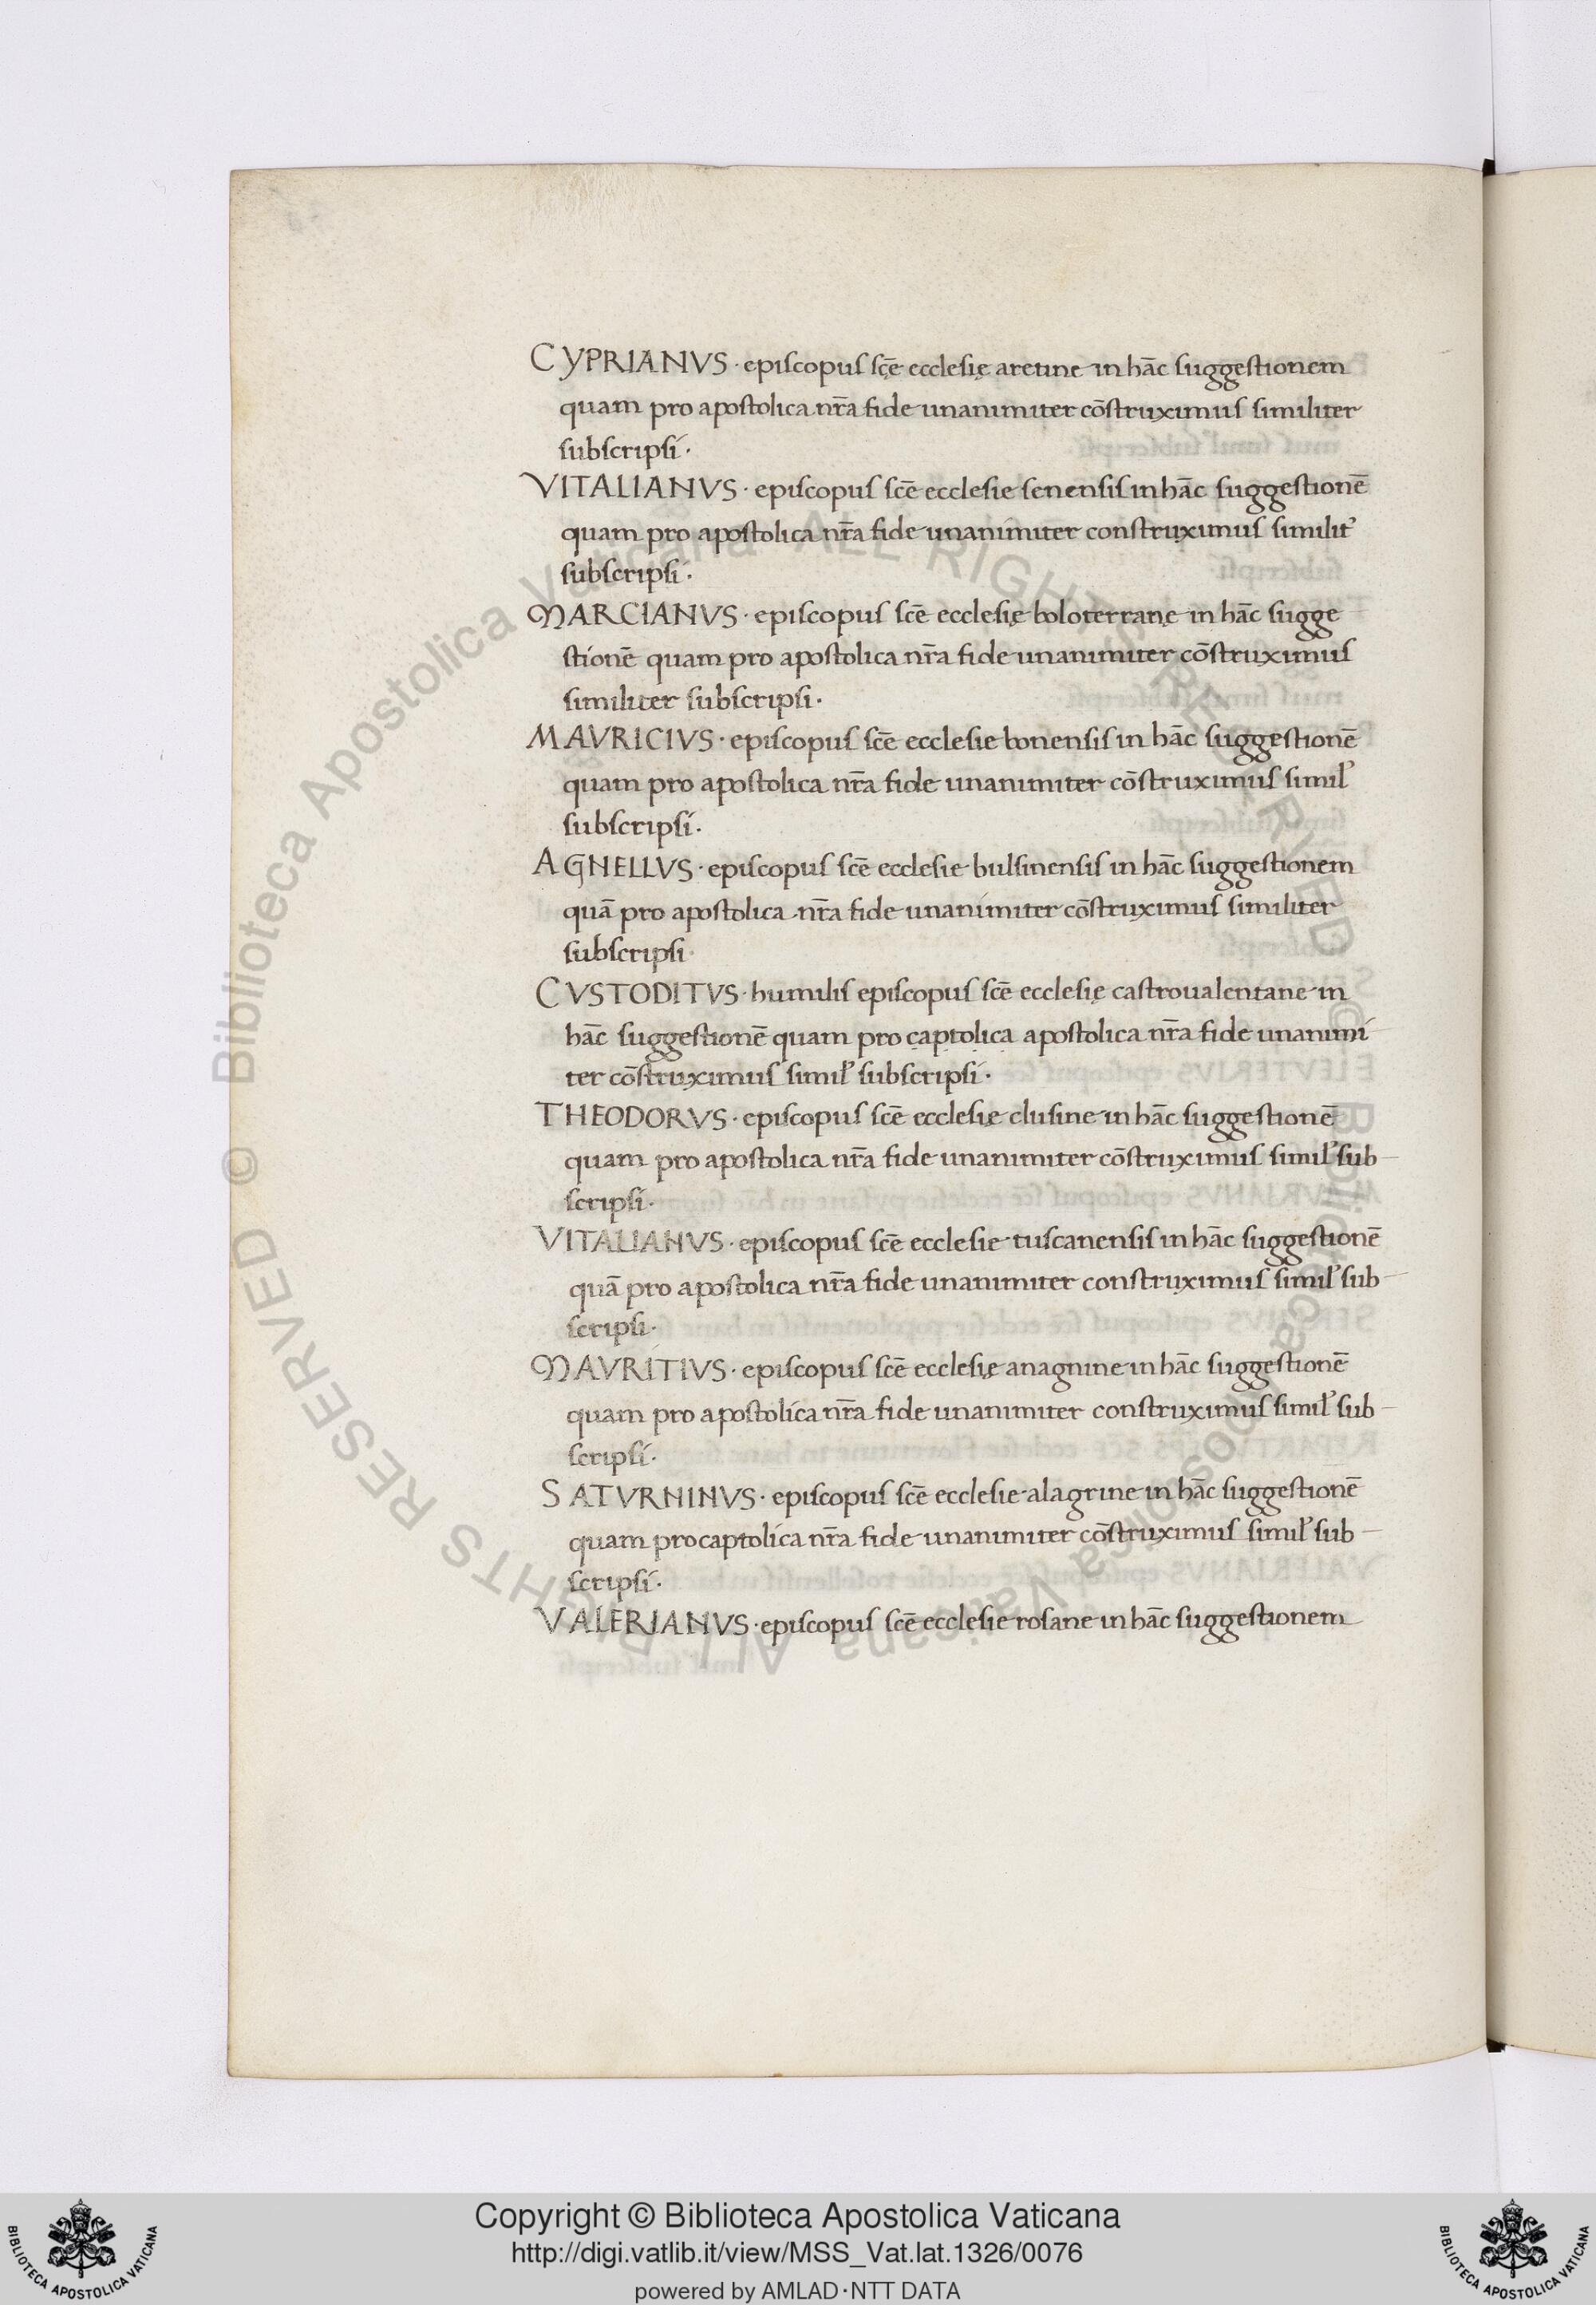 CYPRIANVS · episcopus sc̄ę ecclesię aretine in hāc suggestionem
quam pro apostolica nr̄a fide unanimiter cōstruximus similiter
subscripsi ·
VITALIANVS · episcopus sc̄e ecclesie senensis in hāc suggestionē
quam pro apostolica nr̄a fide unanimiter construximus similit᾿
subscripsi ·
MARCIANVS · episcopus sc̄e ecclesię boloterranę in hāc sugge
stionē quam pro apostolica nr̄a fide unanimiter cōstruximus
similiter subscripsi ·
MAVRICIVS · episcopus sc̄e ecclesie bonensis in hāc suggestionē
quam pro apostolica nr̄a fide unanimiter cōstruximus simil᾿
subscripsi ·
AGNELLVS · episcopus sc̄e ecclesie bulsinensis in hāc suggestionem
quā pro apostolica nr̄a fide unanimiter cōstruximus similiter
subscripsi ·
CVSTODITVS · humilis episcopus sc̄e ecclesię castroualentane in
hāc suggestionē quam pro captolica apostolica nr̄a fide unanimi
ter cōstruximus simil᾿ subscripsi ·
THEODORVS · episcopus sc̄e ecclesię clusine in hāc suggestionē
quam pro apostolica nr̄a fide unanimiter cōstruximus simil᾿ sub
scripsi ·
VITALIANVS · episcopus sc̄e ecclesie tuscanensis in hāc suggestionē
quā pro apostolica nr̄a fide unanimiter construximus simil᾿ sub
scripsi ·
MAVRITIVS · episcopus sc̄e ecclesię anagnine in hāc suggestionē
quam pro apostolica nr̄a fide unanimiter construximus simil᾿ sub
scripsi ·
SATVRNINVS · episcopus sc̄e ecclesie alagrine in hāc suggestionē
quam pro captolica nr̄a fide unanimiter cōstruximus simil᾿ sub
scripsi ·
VALERIANVS · episcopus sc̄e ecclesie rosane in hāc suggestionem
© Biblioteca Apostolica Vaticana ALL RIGHTS RESERVED © Biblioteca Apostolica Vaticana ALL RIGHTS RESERVED
Copyright © Biblioteca Apostolica Vaticana
http://digi.vatlib.it/view/MSS_Vat.lat.1326/0076
powered by AMLAD·NTT DATA
BIBLIOTECA APOSTOLICA VATICANA
BIBLIOTECA APOSTOLICA VATICANA